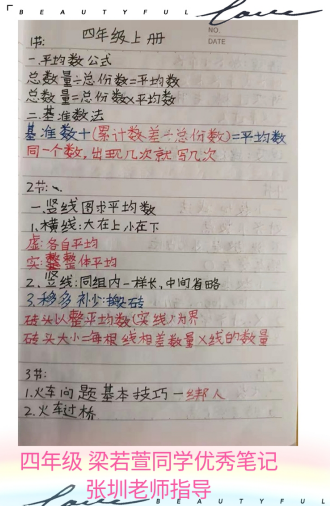 BEAUTYFUL love
NO.
DATE
四年级上册
1节:
一.平均数公式
总数量÷总份数=平均数
总数量=总份数×平均数
二.基准数法
基准数+(累计数差÷总份数)=平均数
同一个数,出现几次就写几次
2节:
一.竖线图求平均数
1.横线:大在上小在下
虚:各自平均
实:整体平均
2.竖线:同组内一样长,中间省略
3.移多补少:搬砖
砖头以整平均数(实线)为界
砖头大小=每根线相差数量×线的数量
3节:
1.火车问题基本技巧一绑人
2.火车过桥
四年级 梁若萱同学优秀笔记
张圳老师指导
love BEAUTYFUL